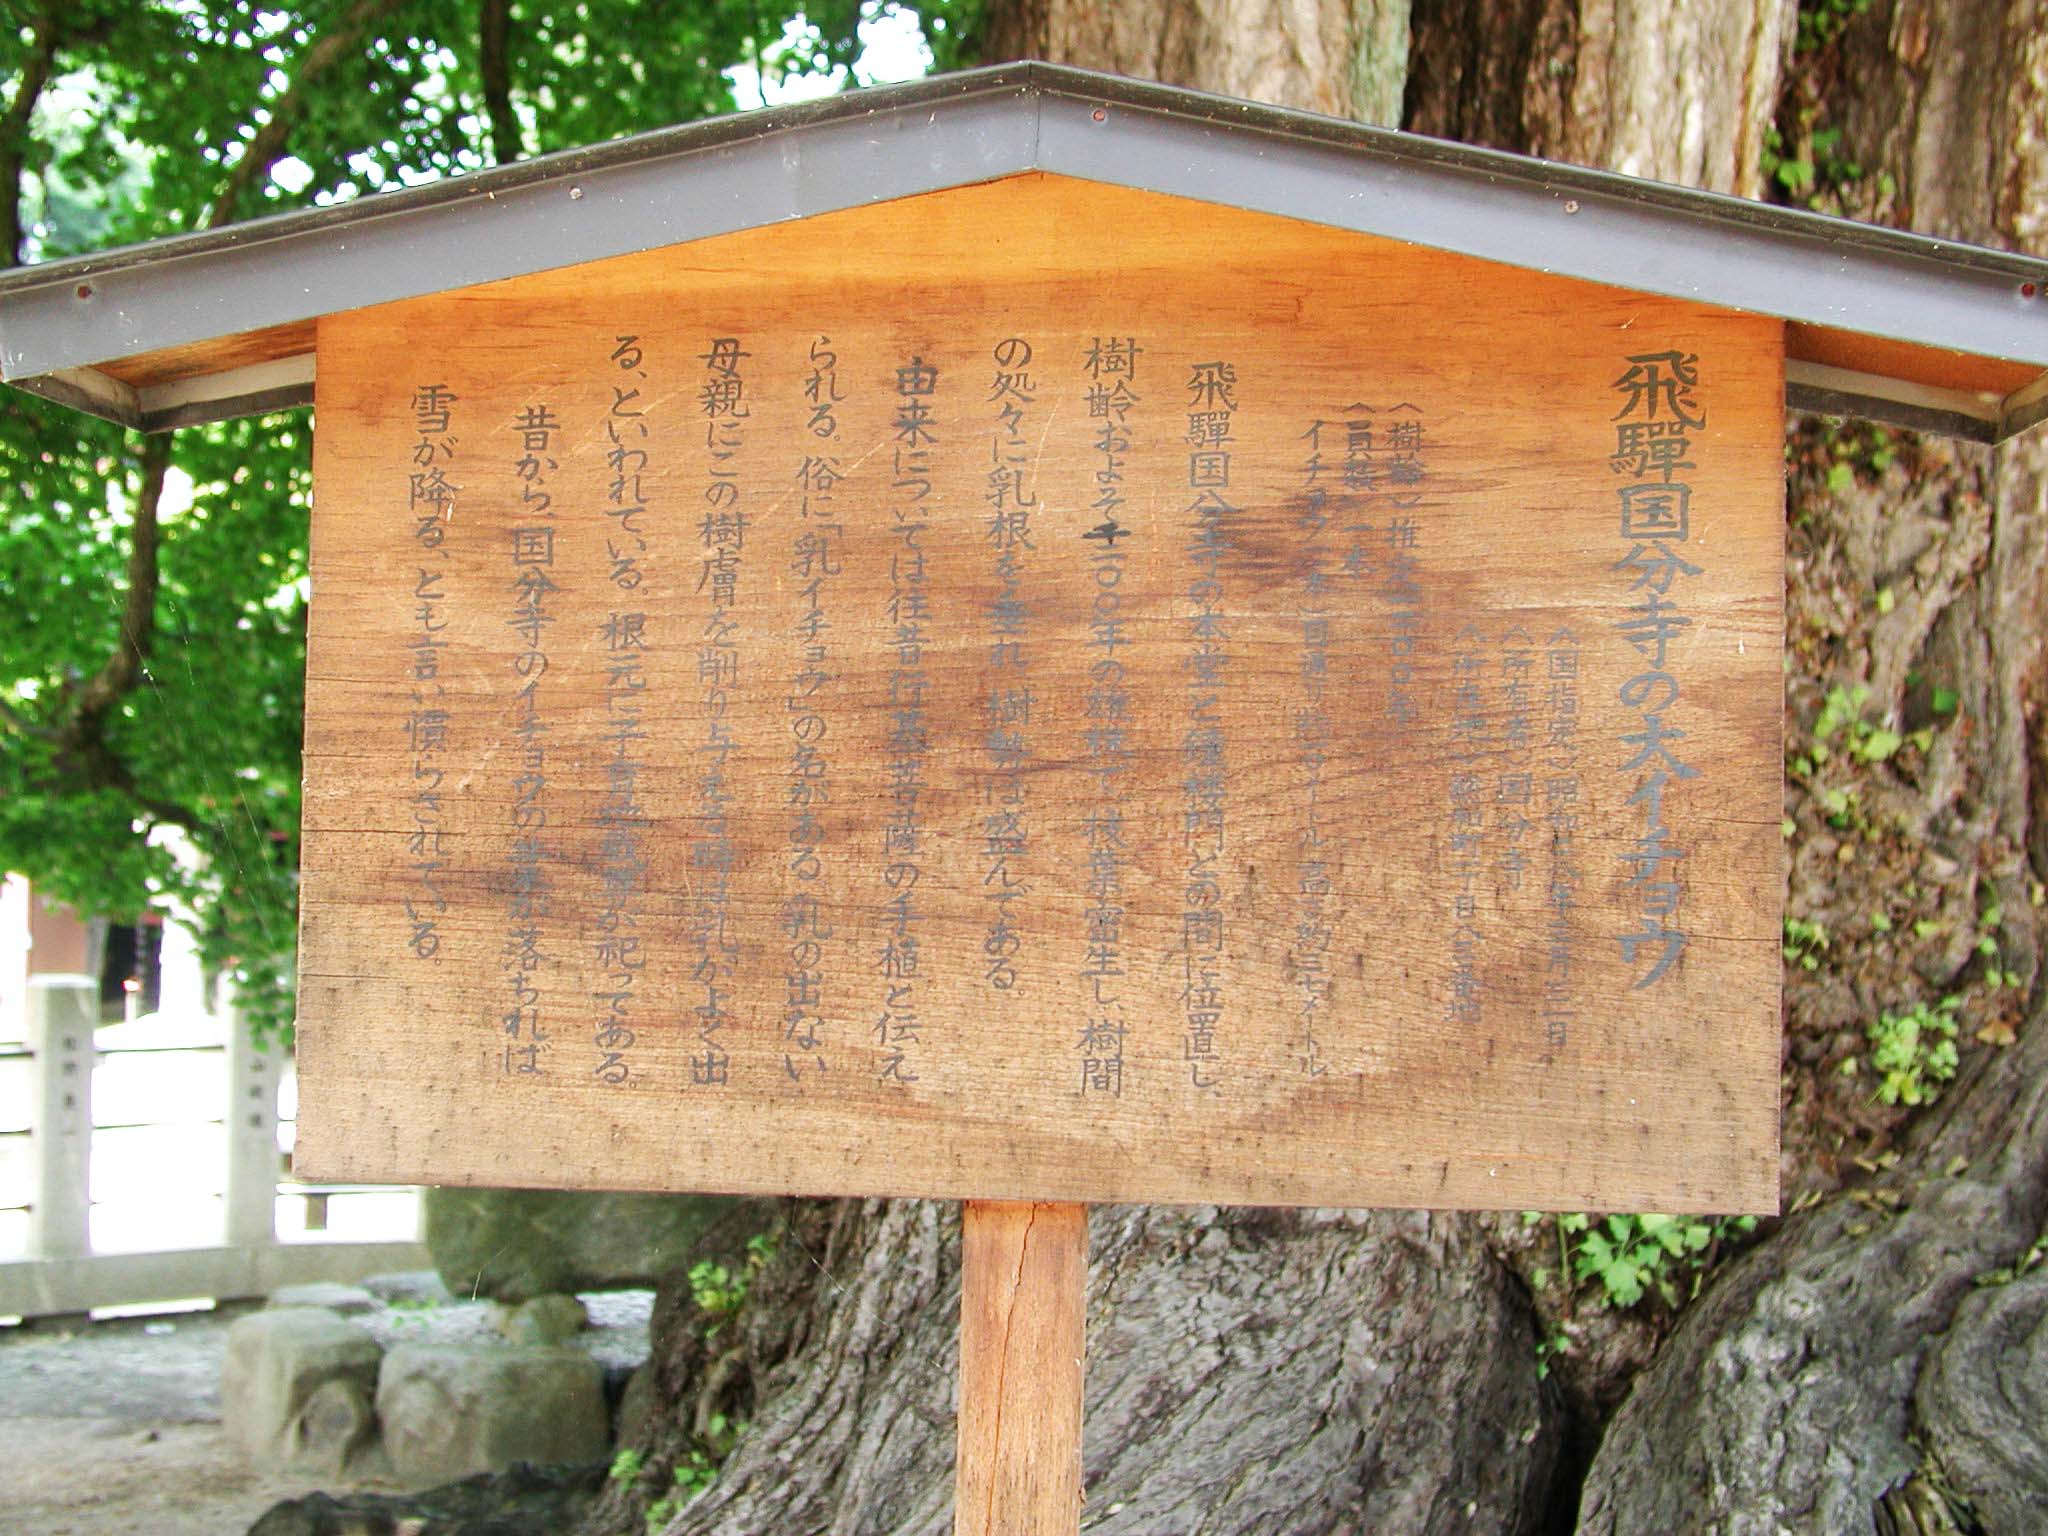 飛驒国分寺の大イチョウ
〈国指定〉昭和二八年三月三一日
〈所有者〉国分寺
〈所在地〉総和町一丁目八三番地
〈樹齢〉推定 二〇〇年
〈員数〉一本
イチョウ 本 目通り 約 メートル 高さ約三七メートル
飛驒国分寺の本堂と鐘楼門との間に位置し、
樹齢およそ千二〇〇年の雄樹で、枝葉密生し、樹間
の処々に乳根を垂れ、樹勢は盛んである。
由来については往昔行基菩薩の手植と伝え
られる。俗に「乳イチョウ」の名がある。乳の出ない
母親にこの樹膚を削り与える時は乳がよく出
る、といわれている。根元に子育 が祀ってある。
昔から、国分寺のイチョウの葉が落ちれば
雪が降る、とも言い慣らされている。